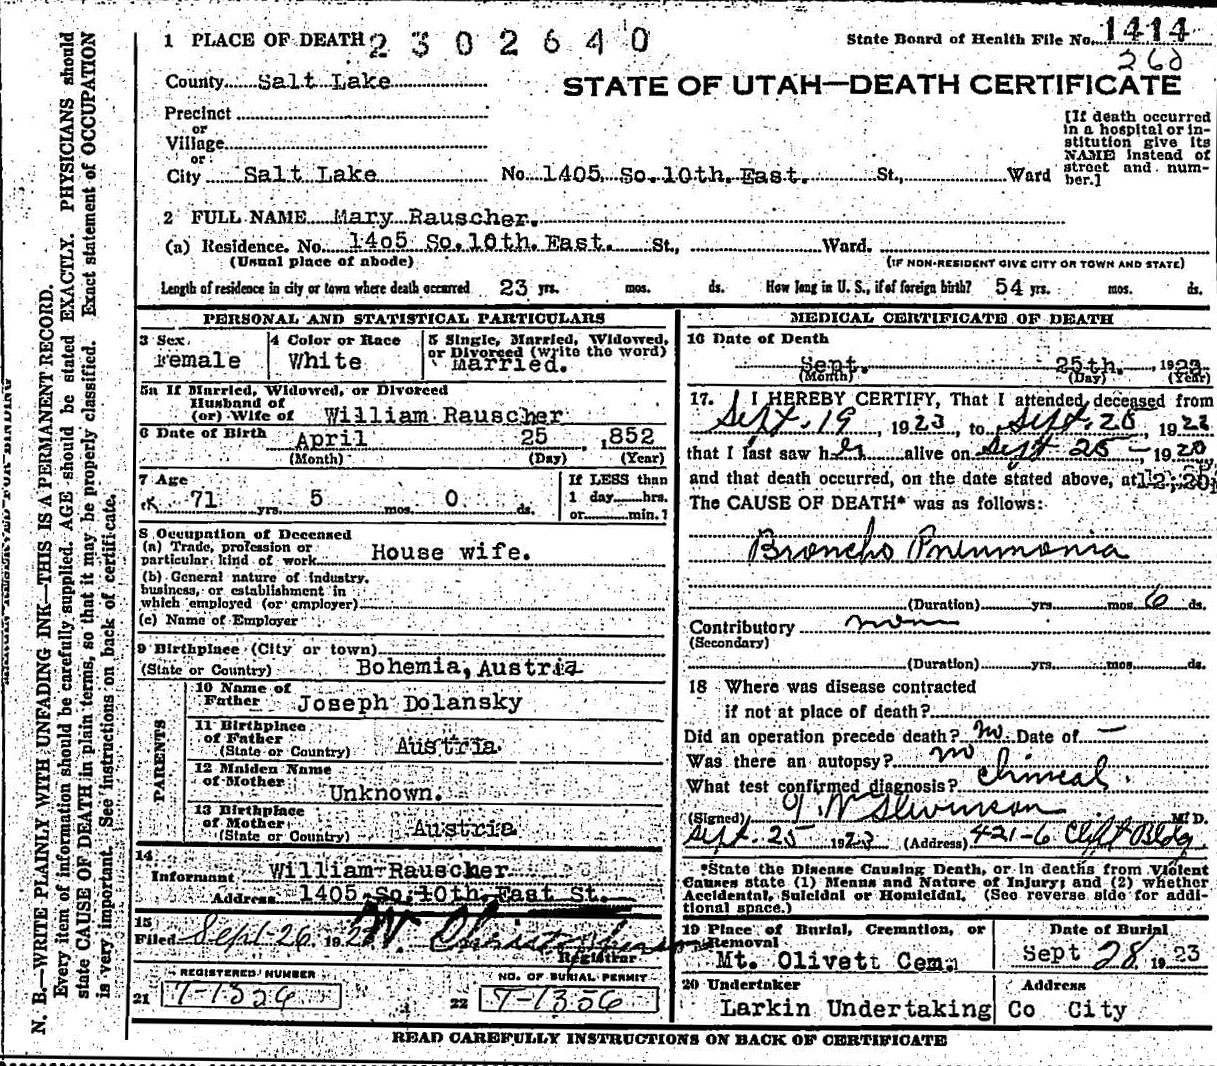 1 PLACE OF DEATH 2 3 0 2 6 4 0
State Board of Health File No. 1414
260
County Salt Lake
STATE OF UTAH—DEATH CERTIFICATE
Precinct
or
Village
or
City Salt Lake No. 1405 So. 10th. East. St., Ward
[If death occurred
in a hospital or in-
stitution give its
NAME instead of
street and num-
ber.]
2 FULL NAME Mary Rauscher.
(a) Residence. No. 14o5 So. 10th. East. St., Ward.
(Usual place of abode)
(IF NON-RESIDENT GIVE CITY OR TOWN AND STATE)
Length of residence in city or town where death occurred 23 yrs. mos. ds. How long in U. S., if of foreign birth? 54 yrs. mos. ds.
PERSONAL AND STATISTICAL PARTICULARS
3 Sex
Female
4 Color or Race
White
5 Single, Married, Widowed,
or Divorced (write the word)
Married.
5a If Married, Widowed, or Divorced
Husband of
(or) Wife of William Rauscher
6 Date of Birth April 25 ,852
(Month) (Day) (Year)
7 Age
71 yrs. 5 mos. 0 ds.
If LESS than
1 day hrs.
or min.?
8 Occupation of Deceased
(a) Trade, profession or
particular kind of work House wife.
(b) General nature of industry,
business, or establishment in
which employed (or employer)
(c) Name of Employer
9 Birthplace (City or town)
(State or Country) Bohemia, Austria
PARENTS
10 Name of
Father Joseph Dolansky
11 Birthplace
of Father
(State or Country) Austria.
12 Maiden Name
of Mother Unknown.
13 Birthplace
of Mother
(State or Country) Austria
14
Informant William Rauscher
Address 1405 So. 10th. East St.
15
Filed Sept 26 192
Registrar
REGISTERED NUMBER
21 T-1356
NO. OF BURIAL PERMIT
22 T-1356
MEDICAL CERTIFICATE OF DEATH
16 Date of Death
Sept. 25th. , 1923
(Month) (Day) (Year)
17. I HEREBY CERTIFY, That I attended deceased from
Sept. 19 , 1923, to Sept. 25 , 1923
that I last saw her alive on Sept 25 — , 1920
and that death occurred, on the date stated above, at 12;20
The CAUSE OF DEATH* was as follows:
Broncho Pneumonia
(Duration) yrs. mos. 6 ds.
Contributory non
(Secondary)
(Duration) yrs. mos. ds.
18 Where was disease contracted
if not at place of death?
Did an operation precede death? no Date of —
Was there an autopsy? no
What test confirmed diagnosis? clinical.
(Signed) M. D.
Sept. 25 1923 (Address) 421-6 Clift Bldg
*State the Disease Causing Death, or in deaths from Violent
Causes state (1) Means and Nature of Injury; and (2) whether
Accidental, Suicidal or Homicidal. (See reverse side for addi-
tional space.)
19 Place of Burial, Cremation, or
Removal
Mt. Olivett Cem.
Date of Burial
Sept 28, 1923
20 Undertaker
Larkin Undertaking Co
Address
City
READ CAREFULLY INSTRUCTIONS ON BACK OF CERTIFICATE
N. B.—WRITE PLAINLY WITH UNFADING INK—THIS IS A PERMANENT RECORD.
Every item of information should be carefully supplied. AGE should be stated EXACTLY. PHYSICIANS should
state CAUSE OF DEATH in plain terms, so that it may be properly classified. Exact statement of OCCUPATION
is very important. See instructions on back of certificate.